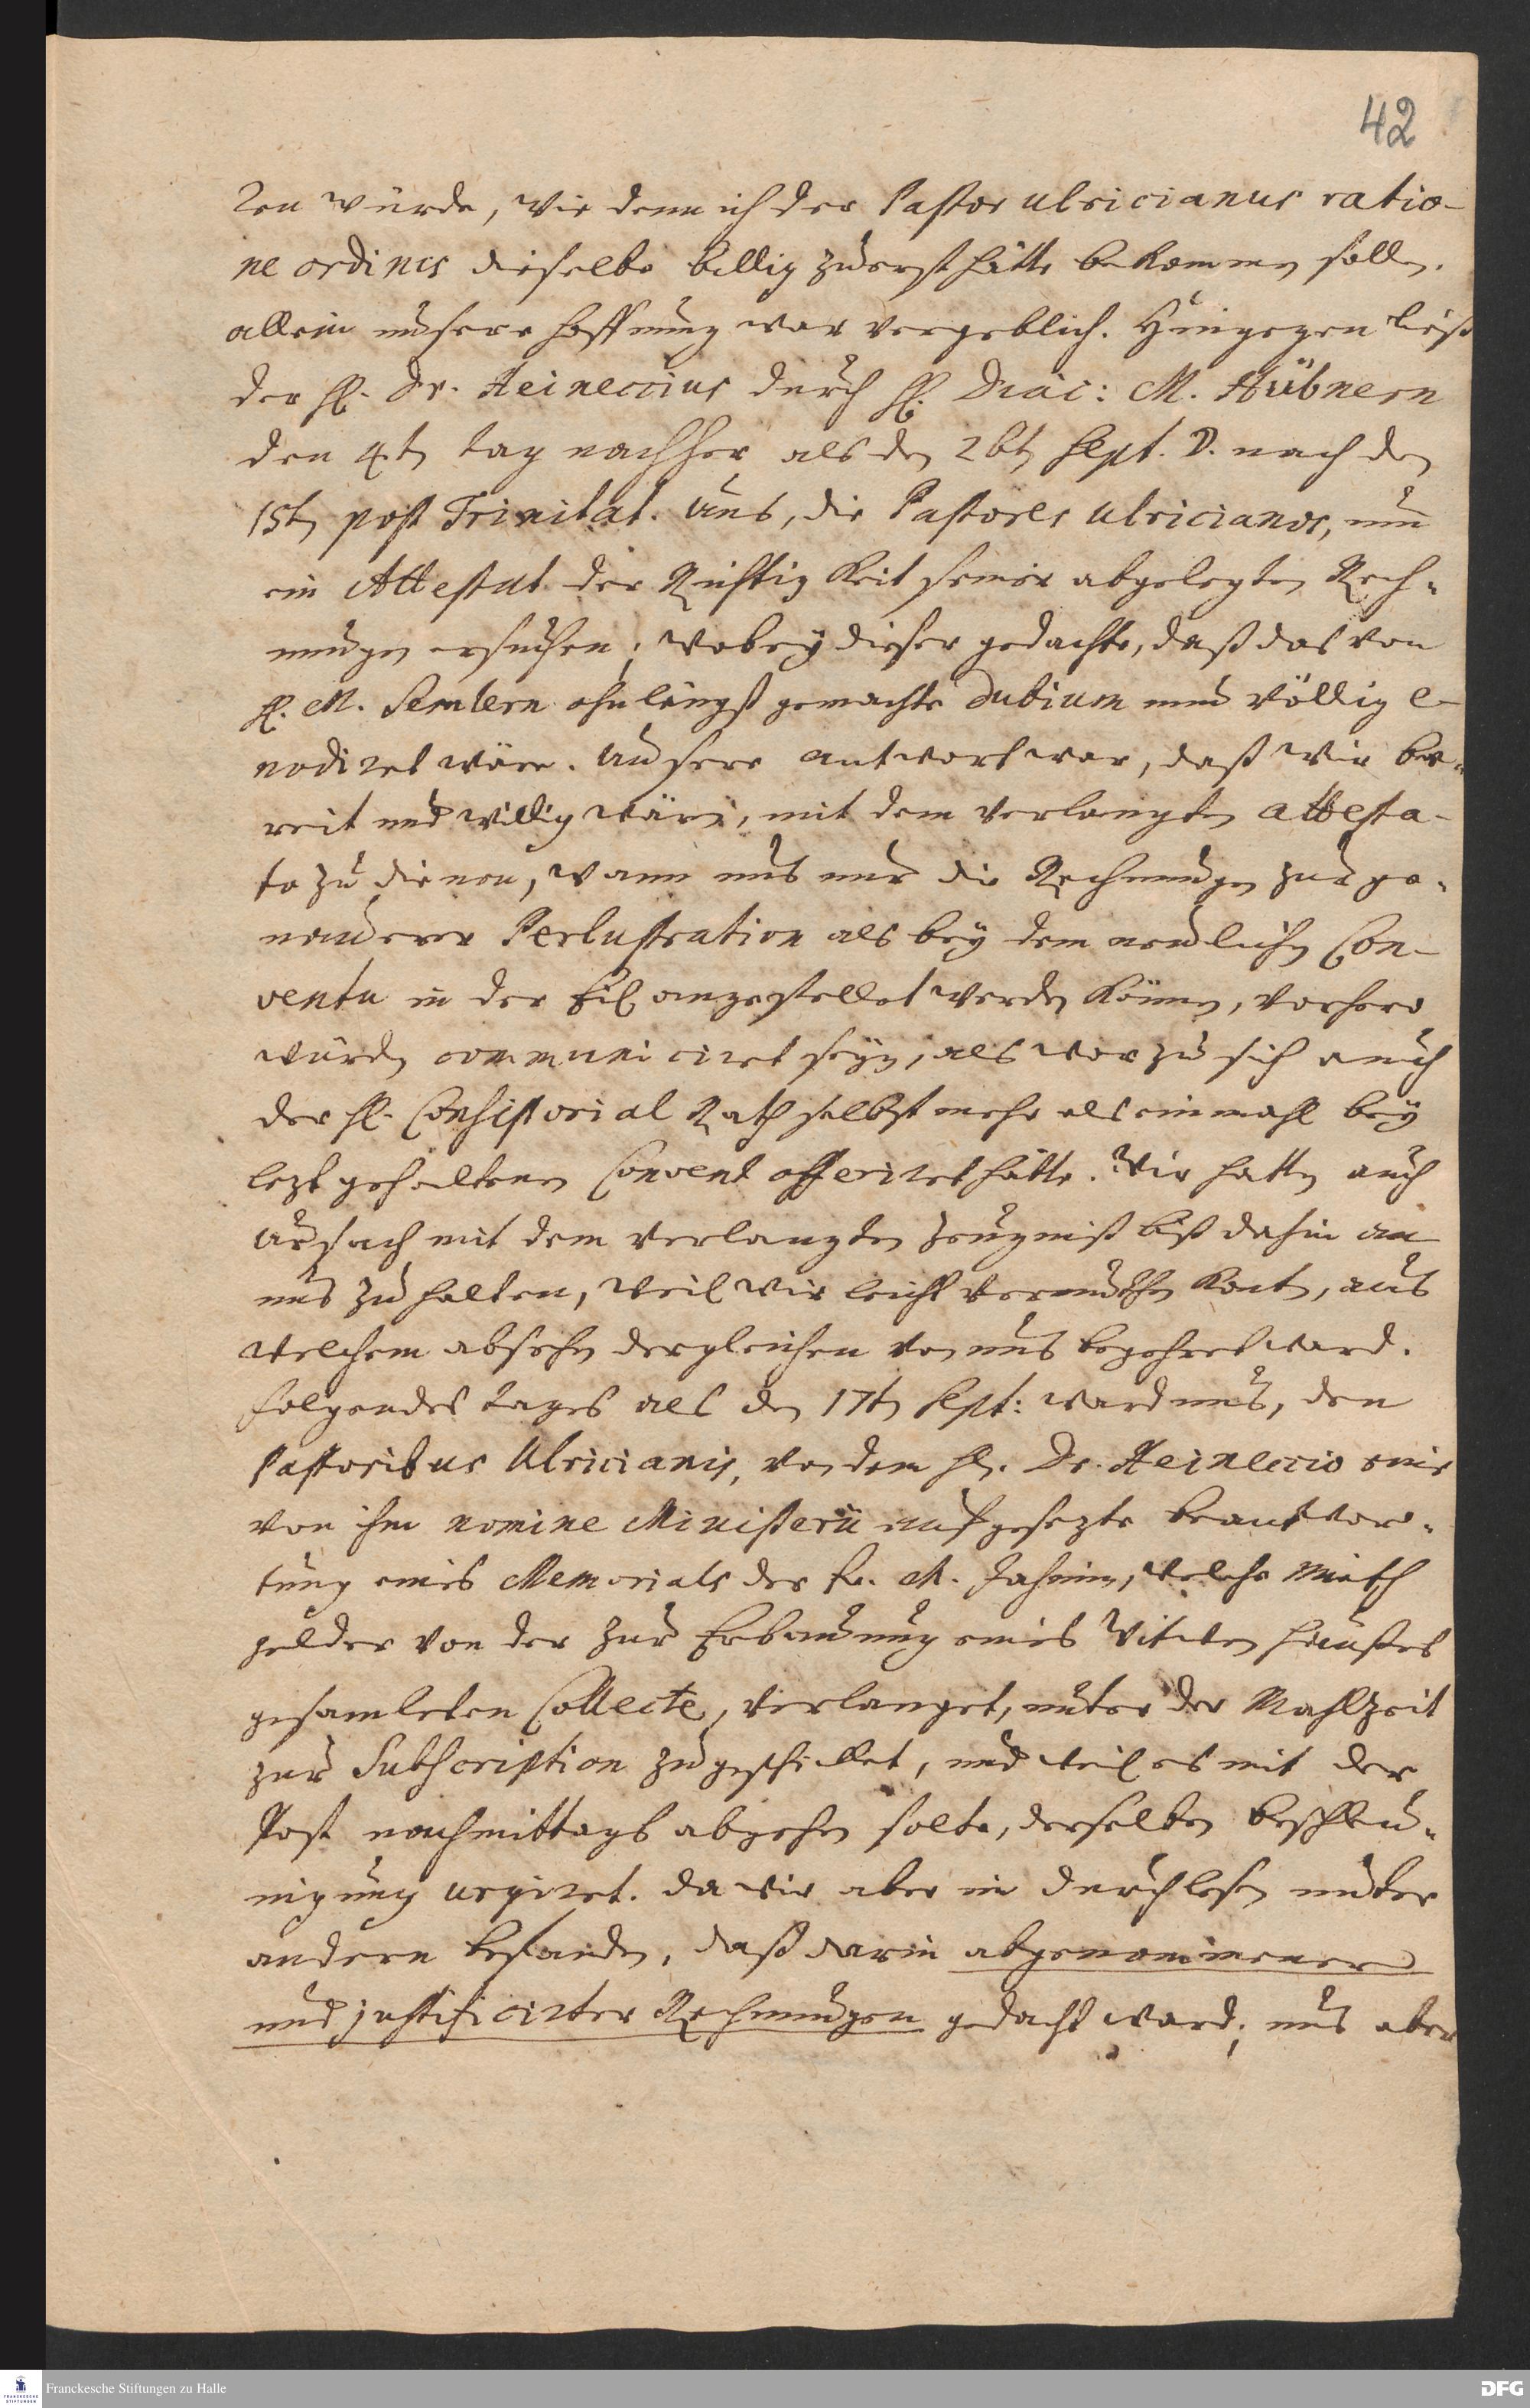 42
ren würde, wie denn ich der Pastor Ulricianus ratio-
ne ordinis dieselbe billig zuerst hätte bekommen sollen.
allein unsere hoffnung war vergeblich. Hingegen ließ
der H. Dr. Heineccius durch H. Diac: M. Hübnern
den 4t tag nachher als den 26t Sept. D. nach den
15t post Trinitat. uns, die Pastores Ulricianos, um
ein Attestat der Richtigkeit seiner abgelegten Rech-
nungen ersuchen; wobey dieser gedachte, daß das von
H. M. Semlern ohnlängst gemachte dubium nun völlig e-
nodiret wäre. Unsere antwort war, daß wir be-
reit und willig wären, mit dem verlangten attesta-
to zu dienen, wann uns nur die Rechnungen zur ge-
nauerer Perlustration als bey dem neulichen Con-
ventu in der Eil angestellet werden können, vorhero
würden communiciret seyn, als worzu sich auch
der H. Consistorial Rath selbst mehr als einmahl bey
lezt gehaltenen Convent offeriret hätte. Wir hatten auch
Ursach mit dem verlangten Zeugniß biß dahin an
uns zu halten, weil wir leicht vermuthen konten, aus
welchem absehen dergleichen von uns begehret ward.
folgendes tages als den 17t Sept: ward uns, den
Pastoribus Ulricianis, von dem H. Dr. Heineccio eine
von ihm nomine Ministerii aufgesezte beantwor-
tung eines Memorials der Fr. M. welche Mieth
gelder von der zur Erbauung eines Witwen haußes
gesamleten Collecte, verlanget, unter der Mahlzeit
zur Subscription zugeschicket, und weil es mit der
Post nachmittags abgehen solte, derselben beschleu-
nigung urgiret. da wir aber im durchlesen unter
andern befanden, daß darin abgenommener
und justificirter Rechnungen gedacht ward; uns aber
Franckesche Stiftungen zu Halle
DFG